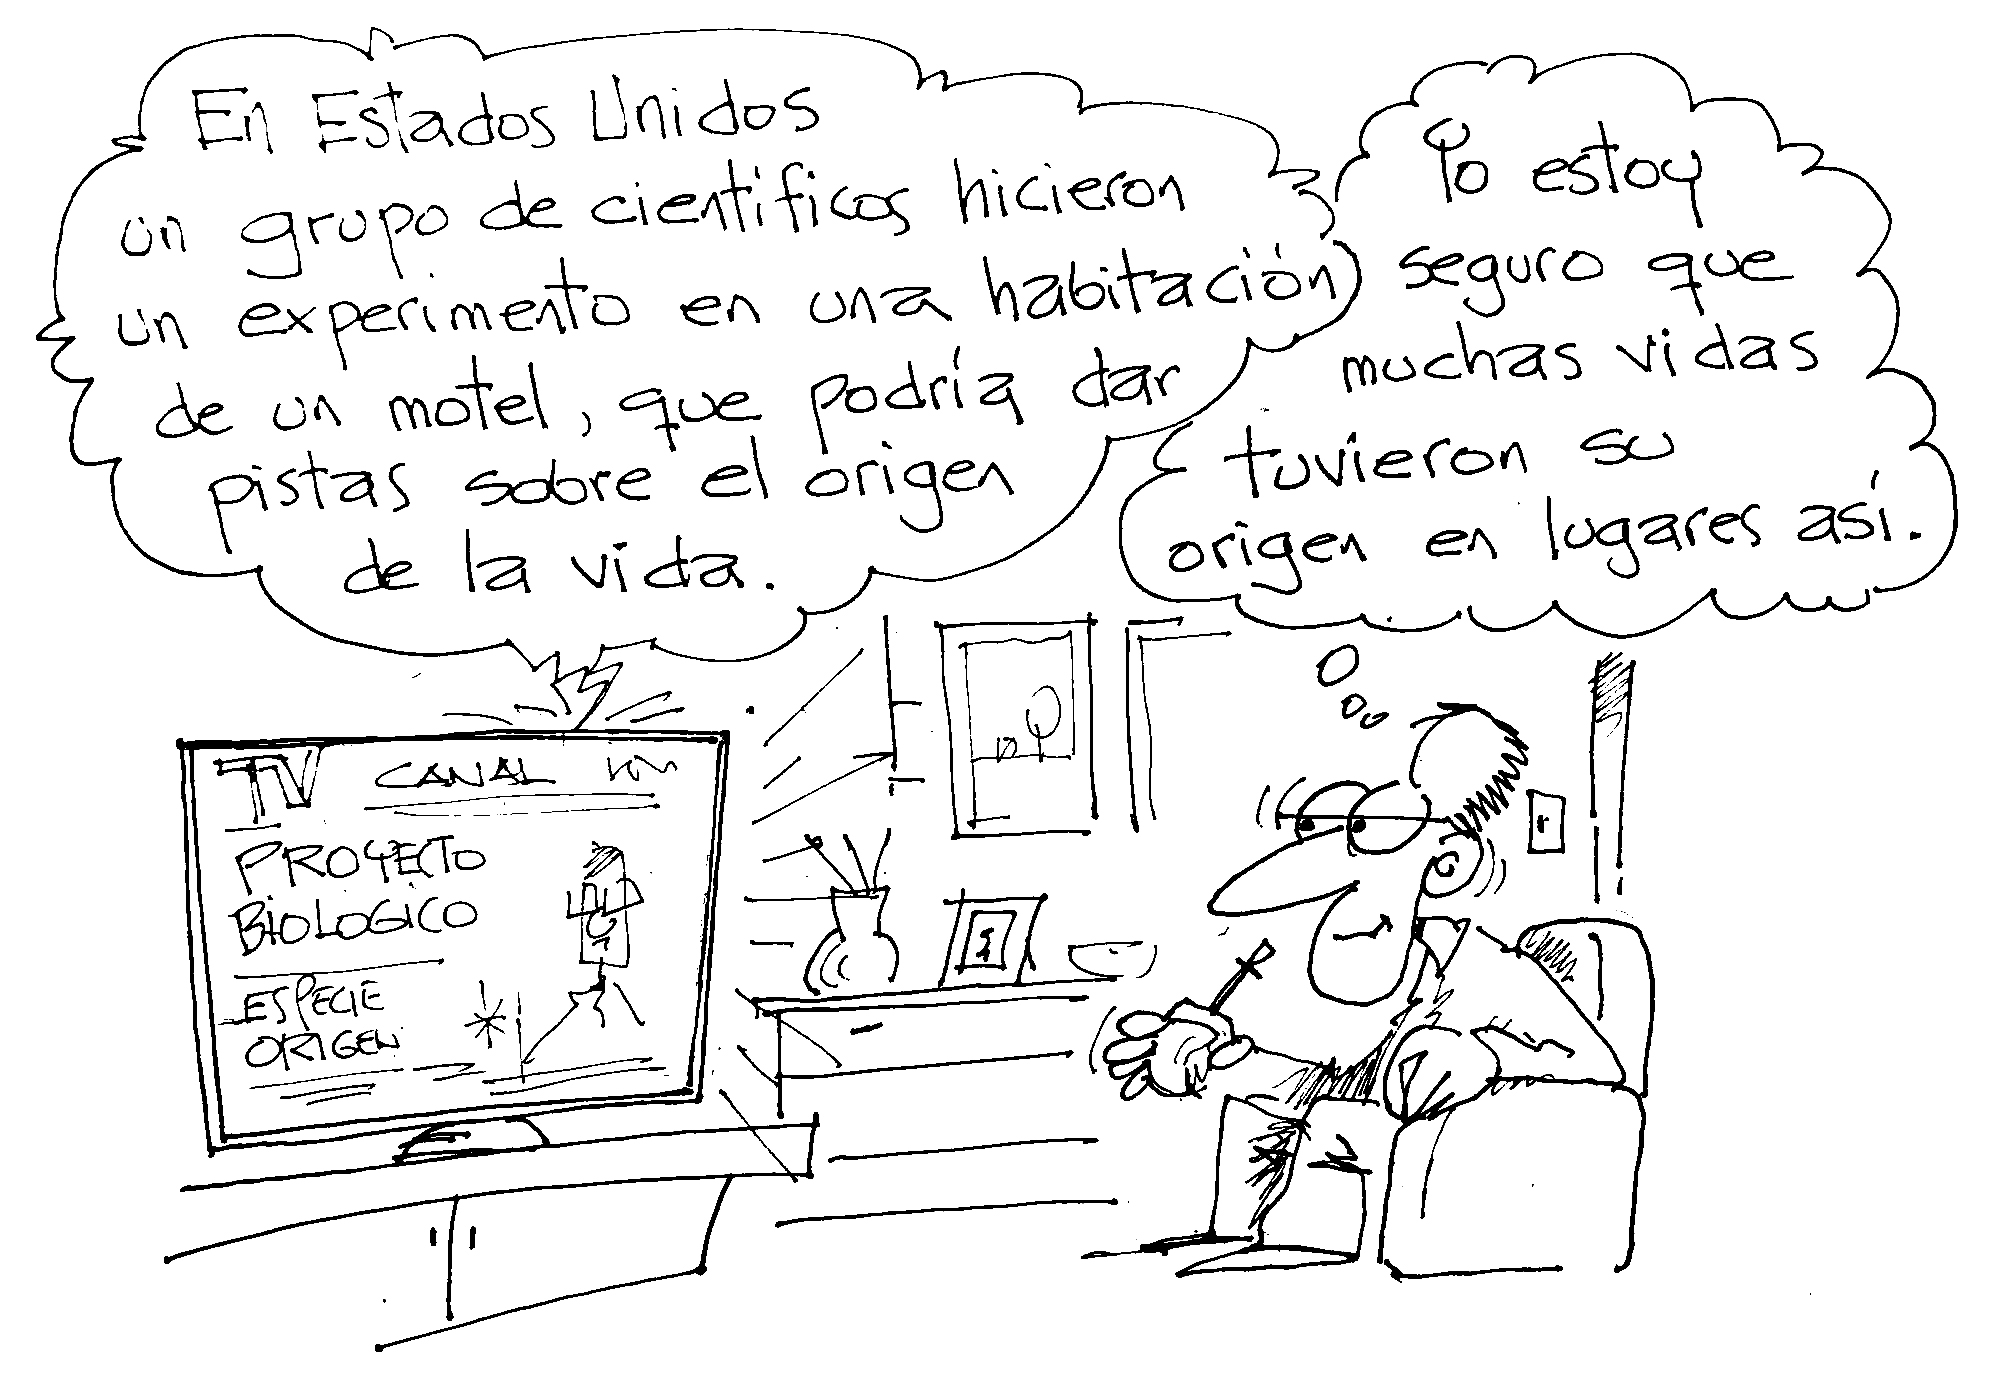 En Estados Unidos
un grupo de científicos hicieron
un experimento en una habitación
de un motel, que podría dar
pistas sobre el origen
de la vida.
Yo estoy
seguro que
muchas vidas
tuvieron su
origen en lugares así.
TV CANAL
PROYECTO
BIOLOGICO
ESPECIE
ORIGEN